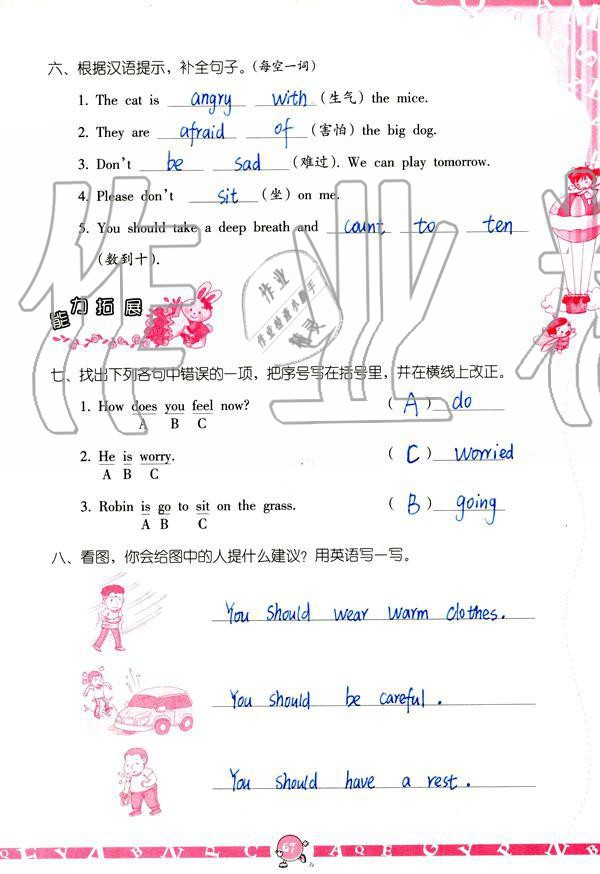 六、根据汉语提示，补全句子。（每空一词）
1. The cat is angry with （生气） the mice.
2. They are afraid of （害怕） the big dog.
3. Don't be sad （难过）. We can play tomorrow.
4. Please don't sit （坐） on me.
5. You should take a deep breath and count to ten
（数到十）.
能力拓展
七、找出下列各句中错误的一项，把序号写在括号里，并在横线上改正。
1. How does you feel now? （ A ） do
A B C
2. He is worry. （ C ） worried
A B C
3. Robin is go to sit on the grass. （ B ） going
A B C
八、看图，你会给图中的人提什么建议？用英语写一写。
You should wear warm clothes.
You should be careful.
You should have a rest.
67
作业